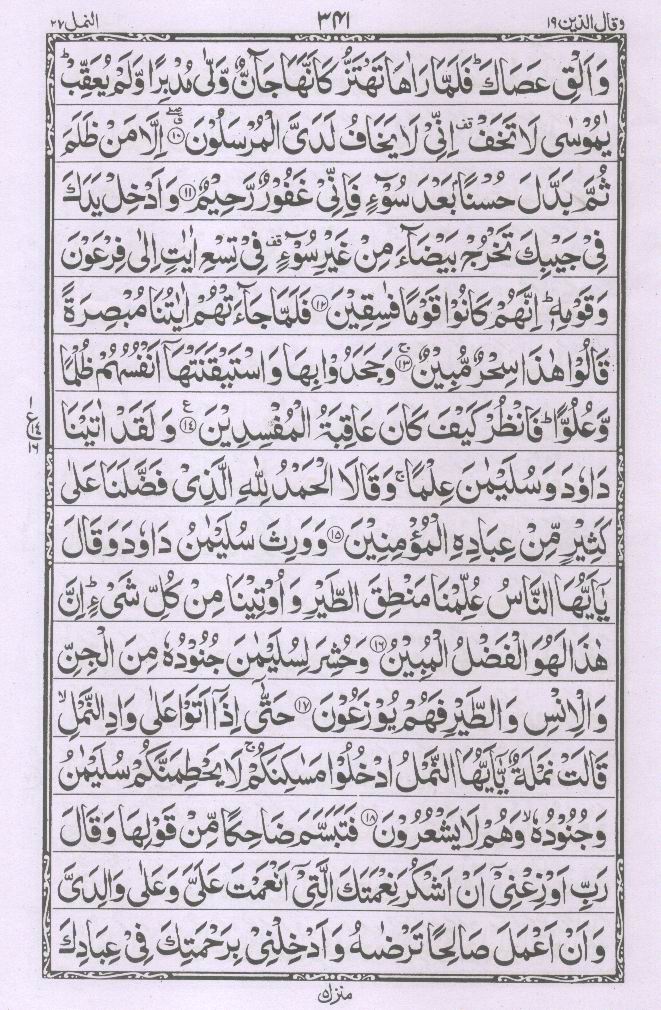 وقال الذین ۱۹ ۳۴۱ النمل ۲۷
وَاَلْقِ عَصَاكَ ؕ فَلَمَّا رَاٰهَا تَهْتَزُّ كَاَنَّهَا جَآنٌّ وَّلّٰی مُدْبِرًا وَّلَمْ یُعَقِّبْ ؕ
یٰمُوْسٰی لَا تَخَفْ ۫ اِنِّیْ لَا یَخَافُ لَدَیَّ الْمُرْسَلُوْنَ ﴿۱۰﴾ اِلَّا مَنْ ظَلَمَ
ثُمَّ بَدَّلَ حُسْنًۢا بَعْدَ سُوْٓءٍ فَاِنِّیْ غَفُوْرٌ رَّحِیْمٌ ﴿۱۱﴾ وَاَدْخِلْ یَدَكَ
فِیْ جَیْبِكَ تَخْرُجْ بَیْضَآءَ مِنْ غَیْرِ سُوْٓءٍ ۫ فِیْ تِسْعِ اٰیٰتٍ اِلٰی فِرْعَوْنَ
وَقَوْمِهٖ ؕ اِنَّهُمْ كَانُوْا قَوْمًا فٰسِقِیْنَ ﴿۱۲﴾ فَلَمَّا جَآءَتْهُمْ اٰیٰتُنَا مُبْصِرَةً
قَالُوْا هٰذَا سِحْرٌ مُّبِیْنٌ ﴿۱۳﴾ ۚ وَجَحَدُوْا بِهَا وَاسْتَیْقَنَتْهَاۤ اَنْفُسُهُمْ ظُلْمًا
وَّعُلُوًّا ؕ فَانْظُرْ كَیْفَ كَانَ عَاقِبَةُ الْمُفْسِدِیْنَ ﴿۱۴﴾ ع وَلَقَدْ اٰتَیْنَا
۱
ع ۱۴
۱۶
دَاوٗدَ وَسُلَیْمٰنَ عِلْمًا ۚ وَقَالَا الْحَمْدُ لِلّٰهِ الَّذِیْ فَضَّلَنَا عَلٰی
كَثِیْرٍ مِّنْ عِبَادِهِ الْمُؤْمِنِیْنَ ﴿۱۵﴾ وَوَرِثَ سُلَیْمٰنُ دَاوٗدَ وَقَالَ
یٰۤاَیُّهَا النَّاسُ عُلِّمْنَا مَنْطِقَ الطَّیْرِ وَاُوْتِیْنَا مِنْ كُلِّ شَیْءٍ ؕ اِنَّ
هٰذَا لَهُوَ الْفَضْلُ الْمُبِیْنُ ﴿۱۶﴾ وَحُشِرَ لِسُلَیْمٰنَ جُنُوْدُهٗ مِنَ الْجِنِّ
وَالْاِنْسِ وَالطَّیْرِ فَهُمْ یُوْزَعُوْنَ ﴿۱۷﴾ حَتّٰۤی اِذَاۤ اَتَوْا عَلٰی وَادِ النَّمْلِ ۙ
قَالَتْ نَمْلَةٌ یّٰۤاَیُّهَا النَّمْلُ ادْخُلُوْا مَسٰكِنَكُمْ ۚ لَا یَحْطِمَنَّكُمْ سُلَیْمٰنُ
وَجُنُوْدُهٗ ۙ وَهُمْ لَا یَشْعُرُوْنَ ﴿۱۸﴾ فَتَبَسَّمَ ضَاحِكًا مِّنْ قَوْلِهَا وَقَالَ
رَبِّ اَوْزِعْنِیْۤ اَنْ اَشْكُرَ نِعْمَتَكَ الَّتِیْۤ اَنْعَمْتَ عَلَیَّ وَعَلٰی وَالِدَیَّ
وَاَنْ اَعْمَلَ صَالِحًا تَرْضٰىهُ وَاَدْخِلْنِیْ بِرَحْمَتِكَ فِیْ عِبَادِكَ
منزل ۵